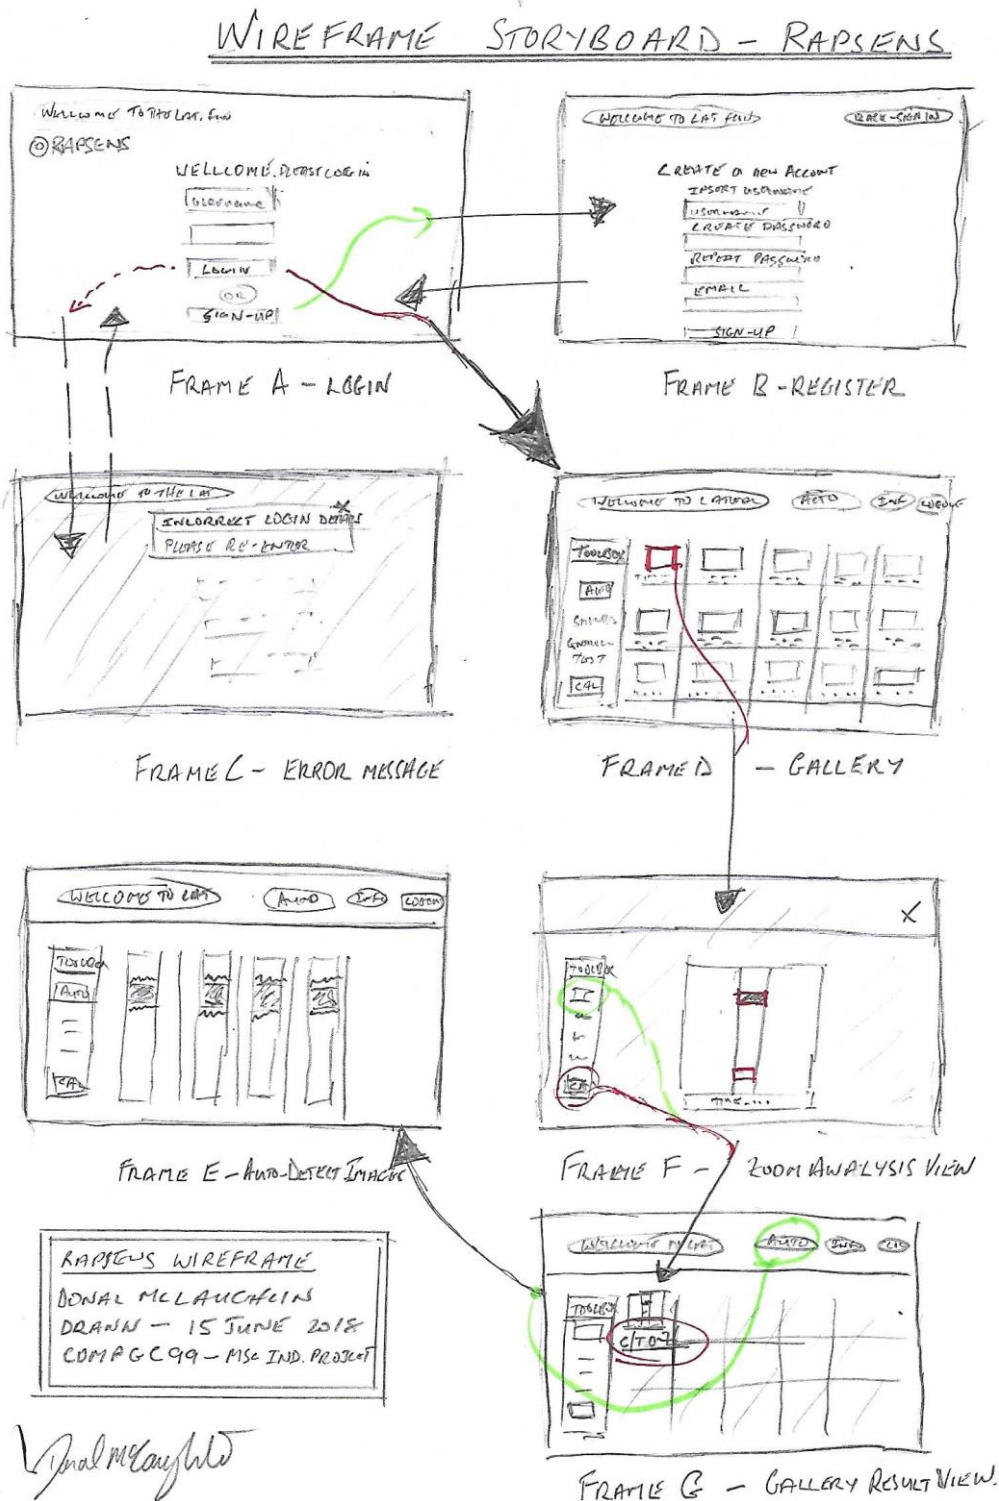 WIREFRAME STORYBOARD - RAPSENS
WELLCOME TO THE LAT. FLW
RAPSENS
WELLCOME. PLEASE LOG IN
username
LOGIN
OR
SIGN-UP
FRAME A - LOGIN
WELCOME TO LAT FLW
BACK-SIGN IN
CREATE A NEW ACCOUNT
INSERT USERNAME
USERNAME
CREATE PASSWORD
REPEAT PASSWORD
EMAIL
SIGN-UP
FRAME B - REGISTER
WELLCOME TO THE LAT
X
INCORRECT LOGIN DETAILS
PLEASE RE-ENTER
FRAME C - ERROR MESSAGE
WELLCOME TO LATERAL
AUTO
INF
LOGOUT
TOOLBOX
AUTO
TEST
CAL
FRAME D - GALLERY
WELCOME TO LAT
AUTO
INFO
LOGOUT
TOOLBOX
AUTO
CAL
FRAME E - AUTO-DETECT IMAGES
X
TOOLBOX
CAL
TIME....
FRAME F - ZOOM ANALYSIS VIEW
WELLCOME TO LAT
AUTO
INF
LO
TOOLBOX
C/T0-7
FRAME G - GALLERY RESULT VIEW.
RAPSENS WIREFRAME
DONAL MCLAUGHLIN
DRAWN - 15 JUNE 2018
COMPGC99 - MSC IND. PROJECT
Donal McLaughlin